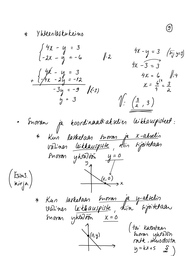 • Yhteenlaskukeino
{ 4x - y = 3
{ -2x - y = -6 |·2
{ 4x - y = 3
+ { -4x - 2y = -12
-3y = -9 |:(-3)
y = 3
4x - y = 3
4x - 3 = 3
4x = 6 |:4
x = 6/4 = 3/2
V: (3/2, 3)
• Suoran ja koordinaattiakselien leikkauspisteet:
• Kun lasketaan suoran ja x-akselin
välinen leikkauspiste, niin sijoitetaan
suoran yhtälöön y = 0
(x,0)
(Esim
kirja)
• Kun lasketaan suoran ja y-akselin
välinen leikkauspiste, niin sijoitetaan
suoran yhtälöön x = 0
(0,y)
suoran yhtälön